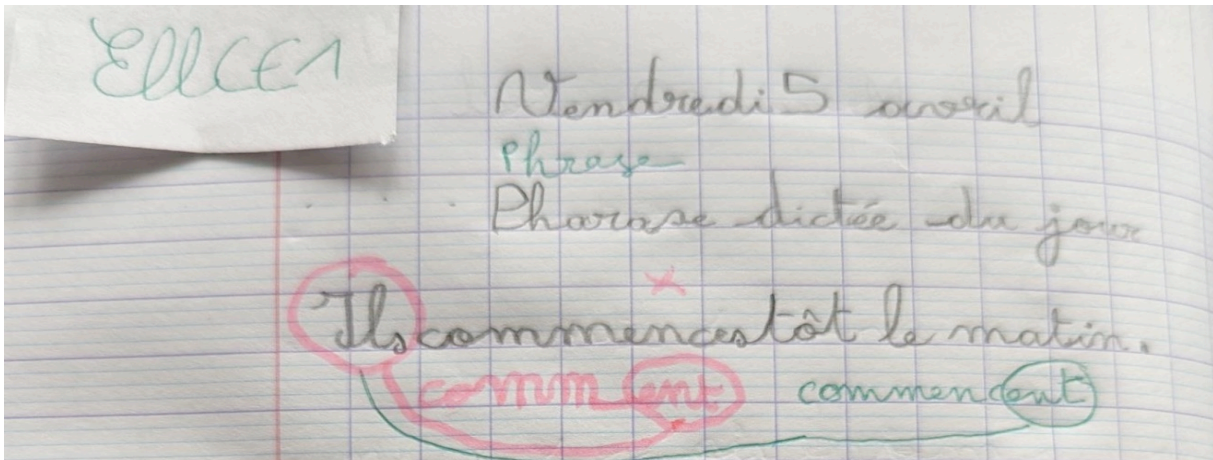 Ell CE1
Vendredi 5 avril
Phrase
Pharase dictée du jour
Ils commences tôt le matin.
comm ent commencent